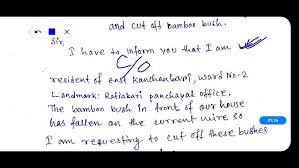 and cut off bamboo bush.
Sir,
I have to inform you that I am
C/O
resident of east Kanchanbari, ward No-2
Landmark: Ratiabari panchayat office.
The bamboo bush in front of our house
has fallen on the current wire so
I am requesting to cut off these bushes